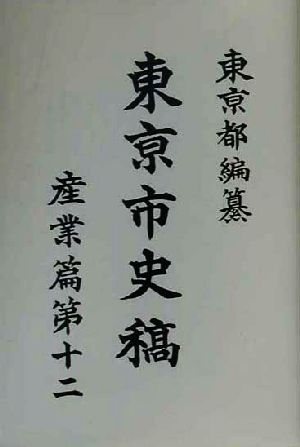 東京都編纂
東京市史稿
産業篇第十二